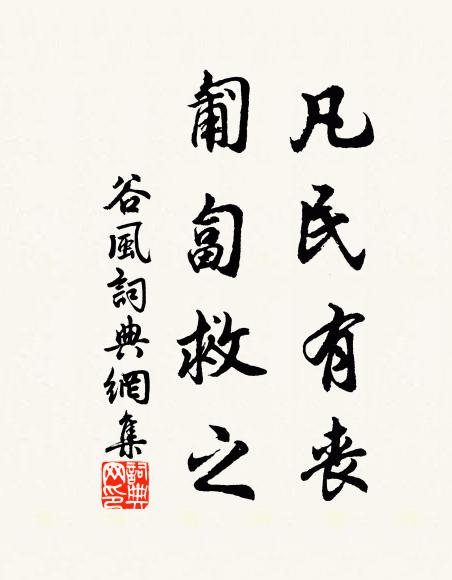 凡民有喪
匍匐救之
谷風詞典網集
詞典网印